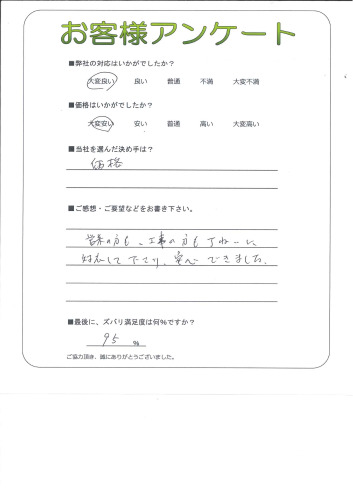 お客様アンケート
■弊社の対応はいかがでしたか？
大変良い 良い 普通 不満 大変不満
■価格はいかがでしたか？
大変安い 安い 普通 高い 大変高い
■当社を選んだ決め手は？
価格
■ご感想・ご要望などをお書き下さい。
営業の方も、工事の方もていねいに
対応して下さり、安心できました。
■最後に、ズバリ満足度は何%ですか？
95 %
ご協力頂き、誠にありがとうございました。